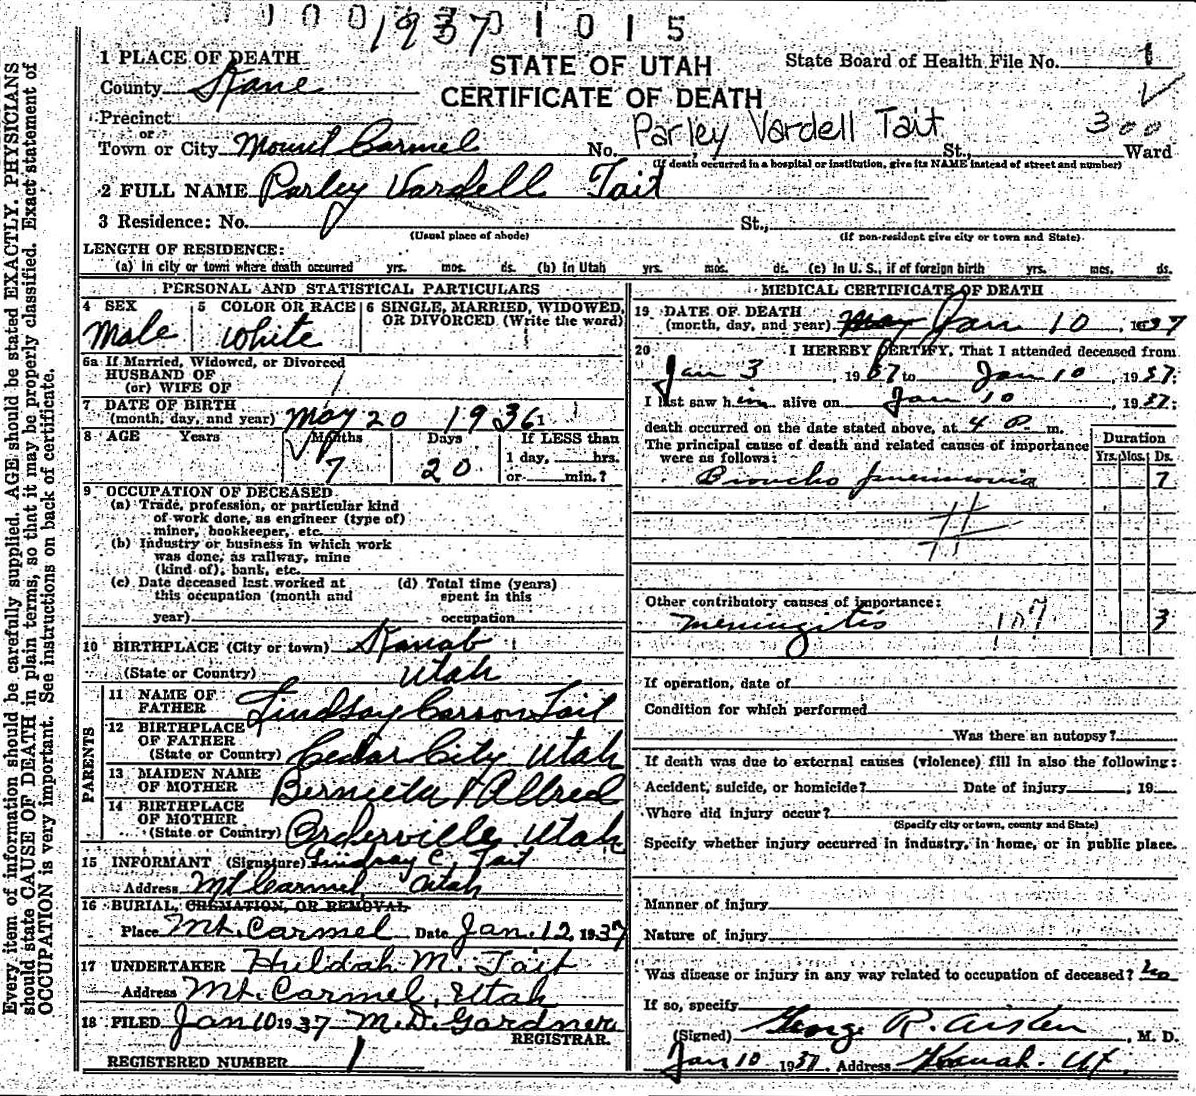 100193701015
1 PLACE OF DEATH
STATE OF UTAH
State Board of Health File No. 1
County Kane
CERTIFICATE OF DEATH
Precinct
Parley Vardell Tait
300
or
Town or City Mount Carmel No. St., Ward
(If death occurred in a hospital or institution, give its NAME instead of street and number)
2 FULL NAME Parley Vardell Tait
3 Residence: No. St.,
(Usual place of abode) (If non-resident give city or town and State)
LENGTH OF RESIDENCE:
(a) In city or town where death occurred yrs. mos. ds. (b) In Utah yrs. mos. ds. (c) In U. S., if of foreign birth yrs. mos. ds.
PERSONAL AND STATISTICAL PARTICULARS
4 SEX Male
5 COLOR OR RACE White
6 SINGLE, MARRIED, WIDOWED, OR DIVORCED (Write the word)
6a If Married, Widowed, or Divorced
HUSBAND OF
(or) WIFE OF
7 DATE OF BIRTH
(month, day, and year) May 20 1936
8 AGE Years Months Days If LESS than
7 20 1 day, hrs.
or min.?
9 OCCUPATION OF DECEASED
(a) Trade, profession, or particular kind
of work done, as engineer (type of)
miner, bookkeeper, etc.
(b) Industry or business in which work
was done, as railway, mine
(kind of), bank, etc.
(c) Date deceased last worked at
this occupation (month and
year)
(d) Total time (years)
spent in this
occupation
10 BIRTHPLACE (City or town) Kanab
(State or Country) Utah
PARENTS
11 NAME OF
FATHER Lindsay Carson Tait
12 BIRTHPLACE
OF FATHER
(State or Country) Cedar City, Utah
13 MAIDEN NAME
OF MOTHER Allred
14 BIRTHPLACE
OF MOTHER
(State or Country) Orderville, Utah
15 INFORMANT (Signature) Lindsay C. Tait
Address Mt Carmel Utah
16 BURIAL, CREMATION, OR REMOVAL
Place Mt. Carmel Date Jan. 12, 1937
17 UNDERTAKER Huldah M. Tait
Address Mt. Carmel, Utah
18 FILED Jan 10 1937 M. D. Gardner
REGISTRAR.
REGISTERED NUMBER 1
MEDICAL CERTIFICATE OF DEATH
19 DATE OF DEATH
(month, day, and year) May Jan 10, 1937
20 I HEREBY CERTIFY, That I attended deceased from
Jan 3, 1937 to Jan 10, 1937:
I last saw him alive on Jan 10, 1937:
death occurred on the date stated above, at 4 P. m.
The principal cause of death and related causes of importance
were as follows:
Duration
Yrs. Mos. Ds.
Broncho pneumonia 7
Other contributory causes of importance:
Meningitis 107 3
If operation, date of
Condition for which performed
Was there an autopsy?
If death was due to external causes (violence) fill in also the following:
Accident, suicide, or homicide? Date of injury , 19
Where did injury occur?
(Specify city or town, county and State)
Specify whether injury occurred in industry, in home, or in public place.
Manner of injury
Nature of injury
Was disease or injury in any way related to occupation of deceased? No
If so, specify
(Signed) George R. Aiken, M. D.
Jan 10 1937. Address Kanab. Ut
Every item of information should be carefully supplied. AGE should be stated EXACTLY. PHYSICIANS
should state CAUSE OF DEATH in plain terms, so that it may be properly classified. Exact statement of
OCCUPATION is very important. See instructions on back of certificate.